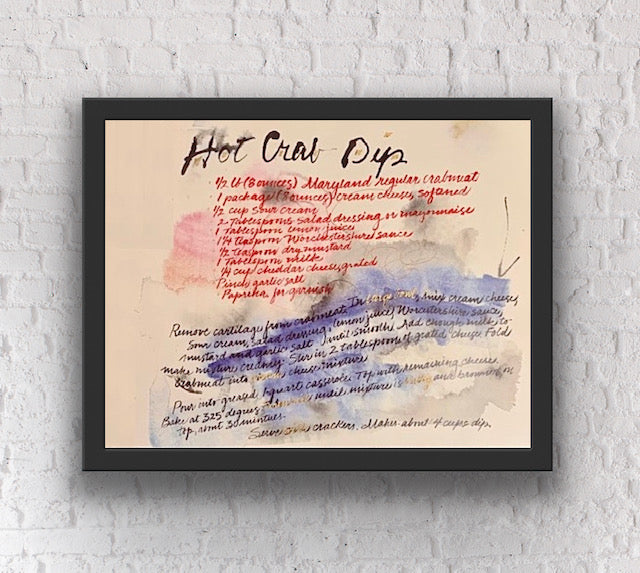 Hot Crab Dip
1/2 lb (8 ounces) Maryland regular crabmeat
1 package (8 ounces) cream cheese, softened
1/2 cup sour cream
2 Tablespoons salad dressing or mayonnaise
1 Tablespoon lemon juice
1 1/4 teaspoon Worchestershire sauce
1/2 teaspoon dry mustard
1 Tablespoon milk
1/4 cup cheddar cheese, grated
Pinch garlic salt
Paprika for garnish
Remove cartilage from crabmeat. In large bowl, mix cream cheese,
sour cream, salad dressing, lemon juice, Worcestershire sauce,
mustard and garlic salt until smooth. Add enough milk to
make mixture creamy. Stir in 2 tablespoons of grated cheese. Fold
crabmeat into cheese mixture.
Pour into greased 1 quart casserole. Top with remaining cheese.
Bake at 325 degrees until mixture is bubbly and browned on
top, about 30 mintues.
Serve crackers. Makes about 4 cups dip.